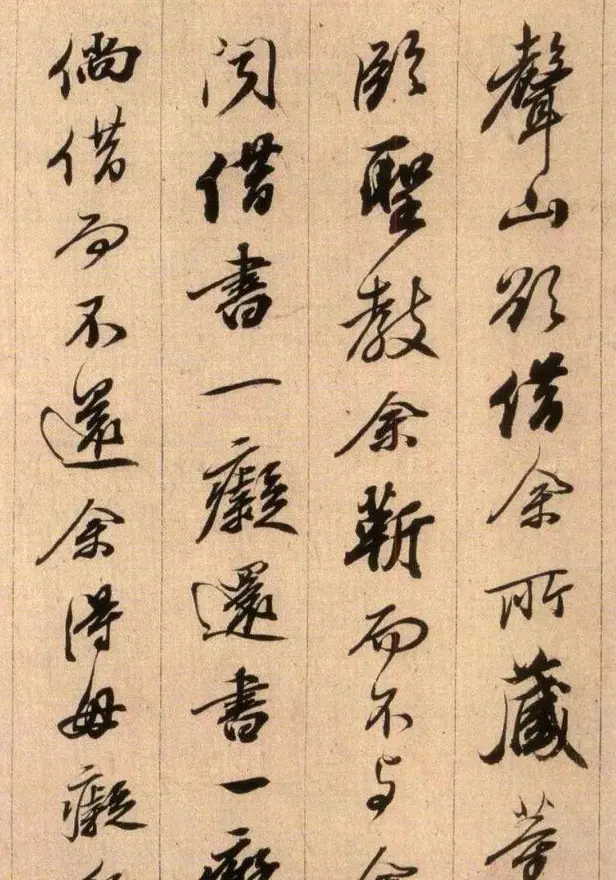 聲山欲借余所藏
臨聖教余靳而不与
聞借書一癡還書一癡
倘借而不還余得毋癡